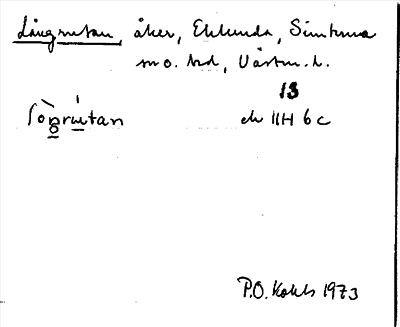 Långrutan, åker, Eklunda, Simtuna
sn o. hd, Västm. l.
13
ek 11H 6c
P.O. Kohls 1973